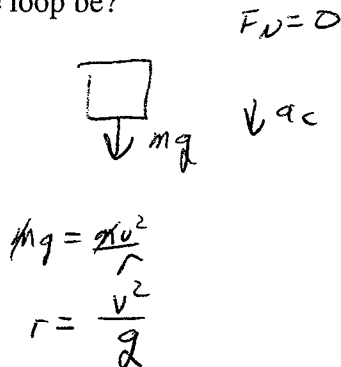 loop be?
F_N = 0
mg
↓ a_c
mg = mv²/r
r = v²/g